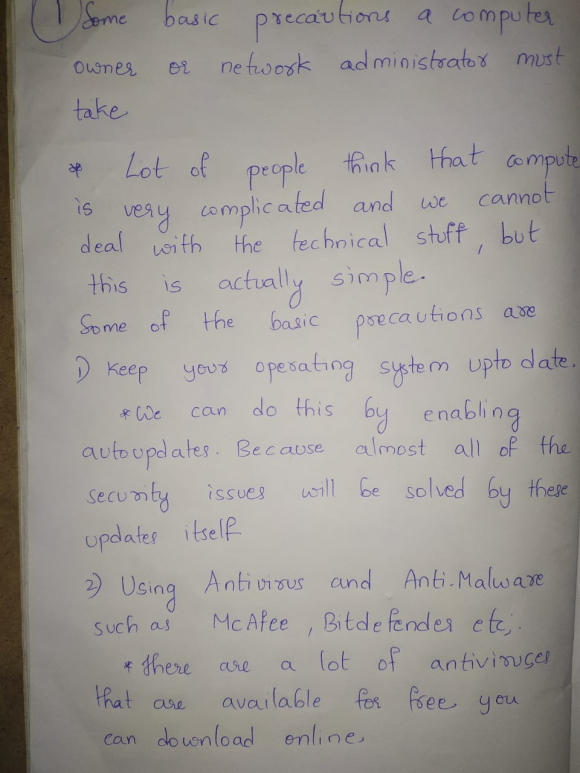 1) Some basic precautions a computer
owner or network administrator must
take
* Lot of people think that compute
is very complicated and we cannot
deal with the technical stuff, but
this is actually simple.
Some of the basic precautions are
1) Keep your operating system upto date.
* We can do this by enabling
autoupdates. Because almost all of the
security issues will be solved by these
updates itself
2) Using Antivirus and Anti-Malware
such as McAfee, Bitdefender etc;.
* There are a lot of antiviruses
that are available for free you
can download online.